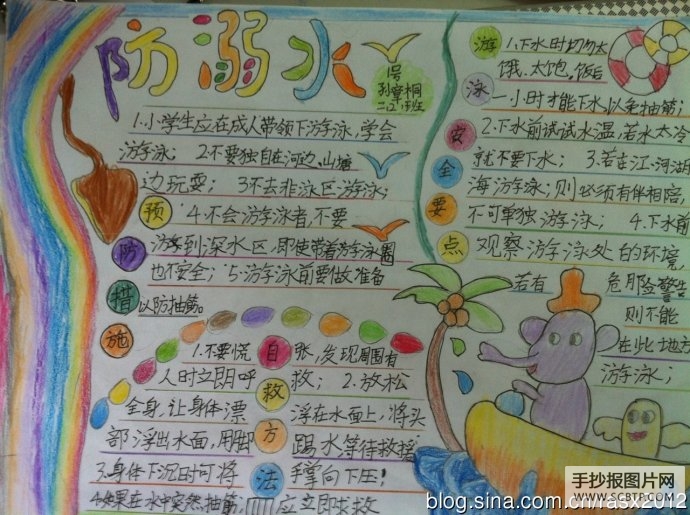 防溺水
1号
孙章桐
二、2班
预防措施
1.小学生应在成人带领下游泳，学会
游泳；2.不要独自在河边、山塘
边玩耍；3.不去非泳区游泳；
4.不会游泳者，不要
游到深水区，即使带着游泳圈
也不安全；5.游泳前要做准备
以防抽筋。
自救方法
1.不要慌张，发现周围有
人时立即呼救；2.放松
全身，让身体漂浮在水面上，将头
部浮出水面，用脚踢水等待救援
3.身体下沉时可将手掌向下压；
4.如果在水中突然抽筋，应立即求救
游泳安全要点
1.下水时切勿太
饿、太饱。饭后
一小时才能下水，以免抽筋；
2.下水前试试水温，若水太冷
就不要下水；3.若在江、河、湖
海游泳，则必须有伴相陪，
不可单独游泳；4.下水前
观察游泳处的环境，
若有危险警告
则不能
在此地方
游泳；
手抄报图片网
WWW.SCBTP.COM
blog.sina.com.cn/rasx2012